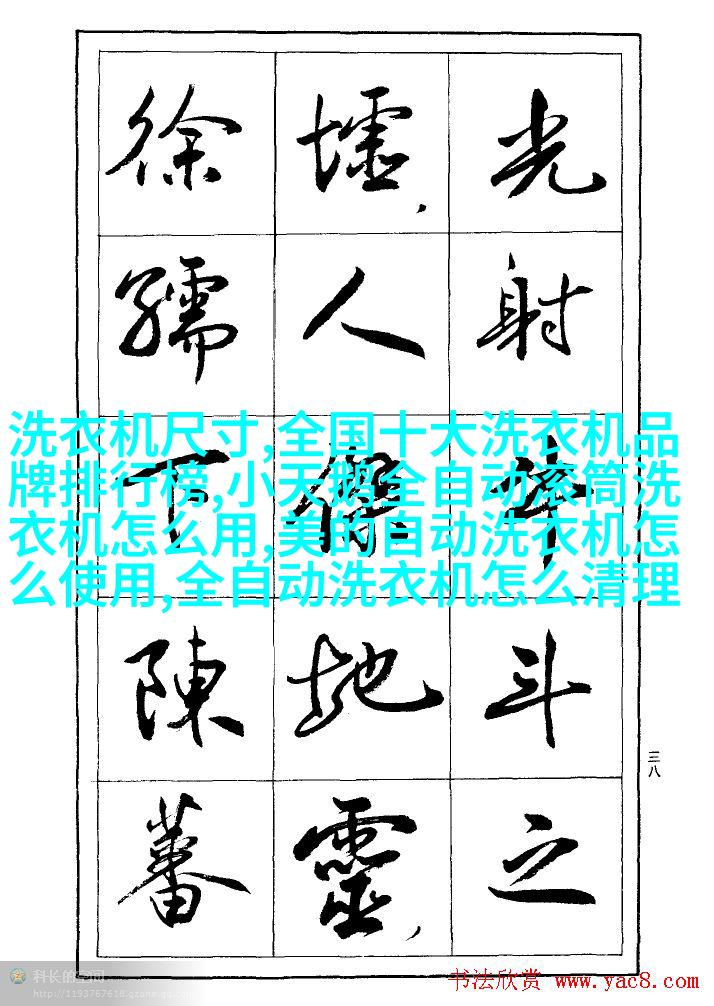 光射牛斗之
墟,人傑地靈,
徐孺下陳蕃
洗衣机尺寸,全国十大洗衣机品
牌排行榜,小天鹅全自动滚筒洗
衣机怎么用,美的自动洗衣机怎
么使用,全自动洗衣机怎么清理
三八
科长的空间
http://1193767618.qzone.qq.com
书法欣赏 www.yac8.com